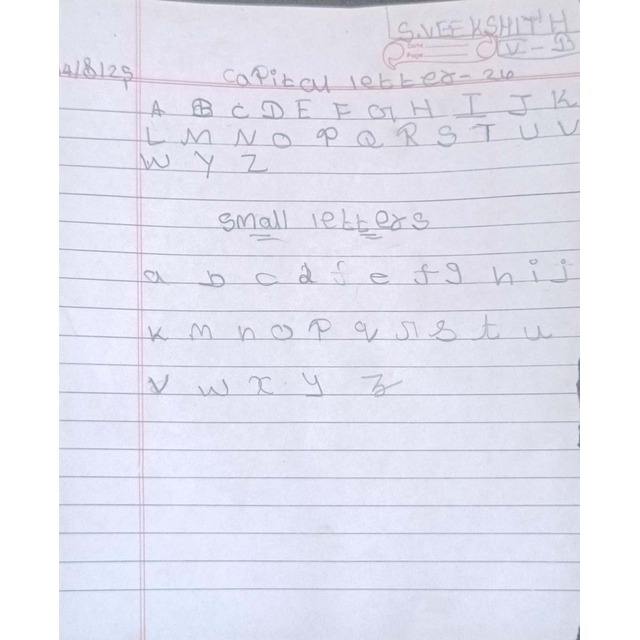 S.VEEKSHITH
Date
Page
V-B
4/8/25
Capital letter-26
A B C D E F G H I J K
L M N O P Q R S T U V
W Y Z
small letters
a b c d f e f g h i j
k m n o p q r s t u
v w x y z